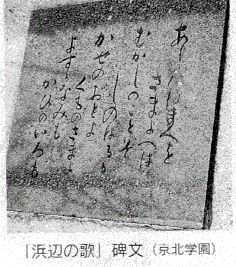 あしたはまべを
さまよへば
むかしのことぞ
しのばるゝ
かぜのおとよ
くものさまよ
よするなみも
かひのいろも
「浜辺の歌」碑文(京北学園)